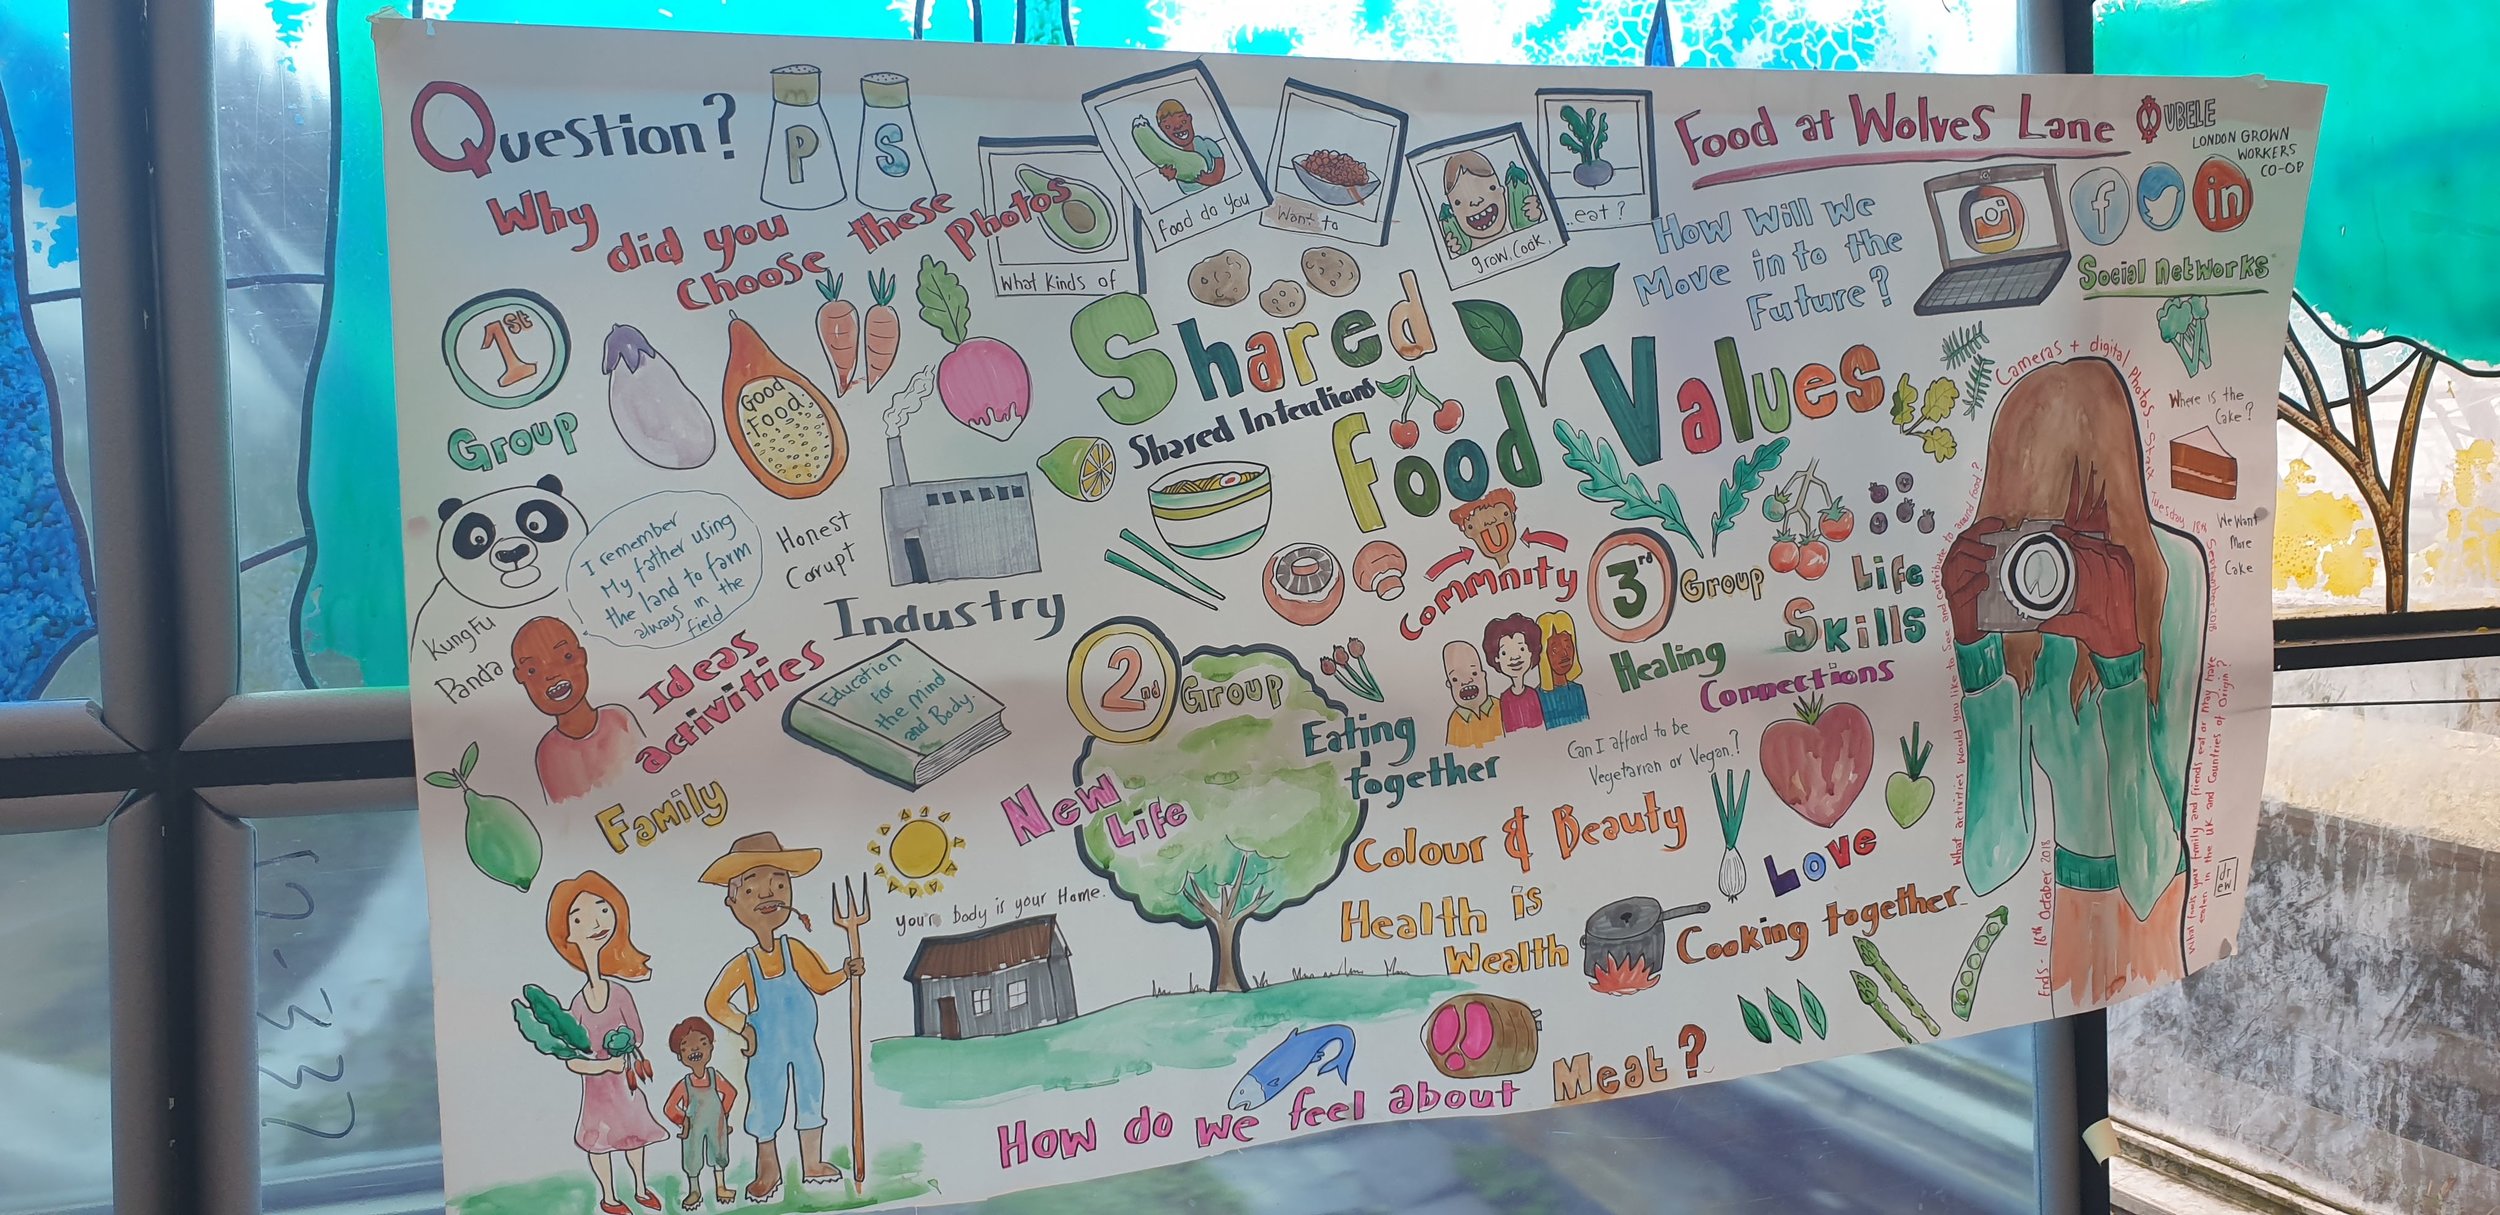 Question?
P
S
Why
did you
Choose these
Photos
What kinds of
Food do you
Want to
grow, Cook,
..eat?
Food at Wolves Lane
UBELE
LONDON GROWN
WORKERS
CO-OP
How Will We
Move in to the
Future?
Social Networks
f
in
1st
Group
Good
Food.
Shared
Shared Intentions
Food
Values
Kung Fu
Panda
I remember
My father using
the land to farm
always in the
field
Honest
Corupt
Industry
Ideas
activities
Education
For
the Mind
and Body.
Family
2nd
Group
New
Life
your body is your Home.
Commnity
U
Eating
together
3rd
Group
Healing
Life
Skills
Connections
Can I afford to be
Vegetarian or Vegan?
Colour & Beauty
Health is
Wealth
Love
Cooking together.
How do we feel about Meat?
Cameras + digital Photos - Start Tuesday 18th September 2018
Ends - 16th October 2018
What activities would you like to see and contribute to around food?
What foods your family and friends eat or may have
eaten in the UK and Countries of Origin?
Where is the
Cake?
We Want
More
Cake
drew
10-337